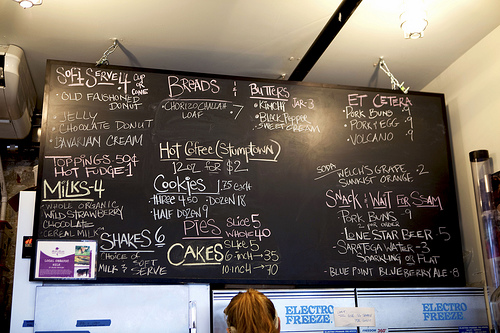 SOFT SERVE 4 CUP OR CONE
• OLD FASHIONED DONUT
• JELLY
• CHOCOLATE DONUT
• BAVARIAN CREAM
TOPPINGS 50¢
HOT FUDGE 1
MILKS-4
• WHOLE ORGANIC
WILD STRAWBERRY
CHOCOLATE
CEREAL MILK
SHAKES 6
CHOICE OF
MILK & SOFT SERVE
BREADS & BUTTERS
• CHORIZO CHALLAH LOAF 7
• KIMCHI JAR-3
• BLACK PEPPER
• SWEET CREAM
HOT COFFEE (STUMPTOWN)
12 OZ FOR $2
COOKIES 1.75 EACH
• THREE 4.50 • DOZEN 18
• HALF DOZEN 9
PIES SLICE 5
WHOLE 40
CAKES SLICE 5
6-INCH → 35
10 INCH → 70
ET CETERA
• PORK BUNS 9
• PORKY EGG 9
• VOLCANO 9
SODA WELCH'S GRAPE 2
SUNKIST ORANGE
SNACK & WAIT FOR SSAM
• PORK BUNS 9
2 PER ORDER
• LONE STAR BEER 5
• SARATOGA WATER - 3
SPARKLING OR FLAT
• BLUE POINT BLUEBERRY ALE - 8
ELECTRO FREEZE
ELECTRO FREEZE